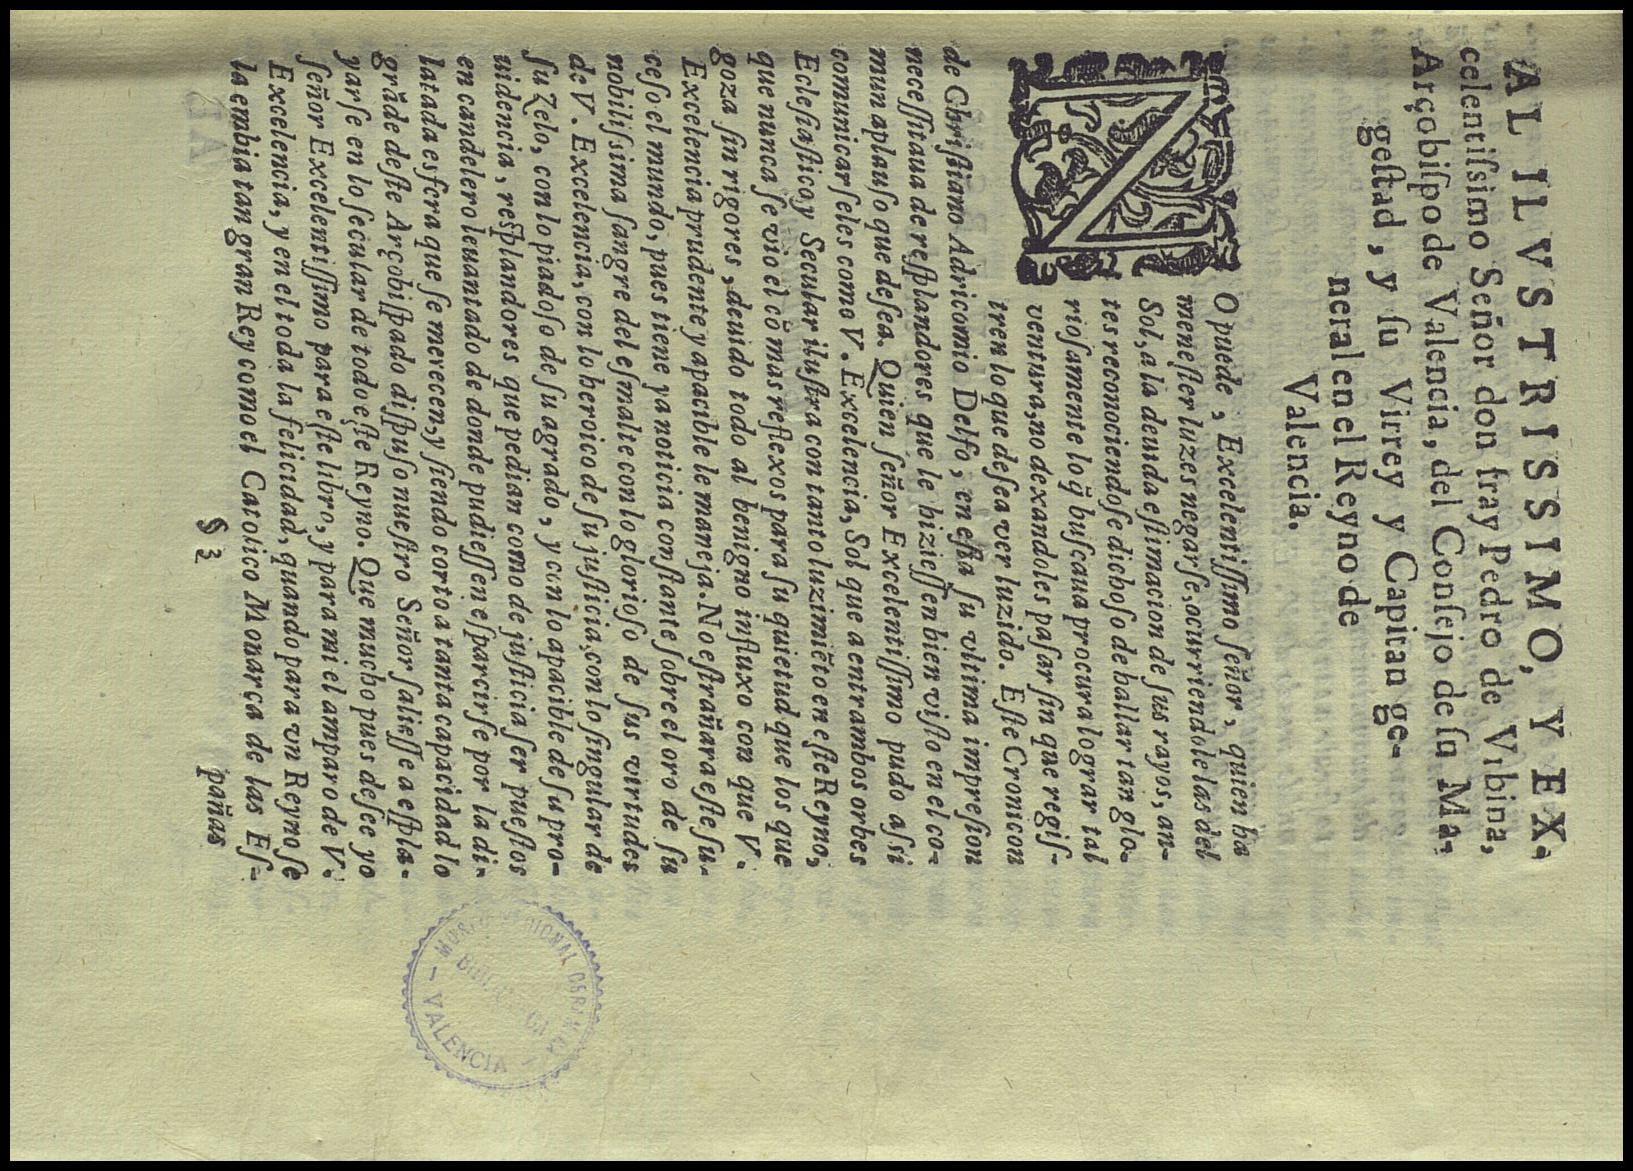 AL ILVSTRISSIMO, Y EX-
celentiſsimo Señor don fray Pedro de Vrbina,
Arçobiſpo de Valencia, del Conſejo de ſu Ma-
geſtad, y ſu Virrey y Capitan ge-
neral en el Reyno de
Valencia.
NO puede, Excelentiſſimo ſeñor, quien ha
meneſter luzes negarſe, ocurriendole las del
Sol, a la deuida eſtimacion de ſus rayos, an-
tes reconociendoſe dichoſo de hallar tan glo-
rioſamente lo q̃ buſcaua procura lograr tal
ventura, no dexandoles paſar ſin que regiſ-
tren lo que deſea ver luzido. Eſte Cronicon
de Chriſtiano Adricomio Delfo, en eſta ſu vltima impreſion
neceſſitaua de reſplandores que le hizieſſen bien viſto en el co-
mun aplauſo que deſea. Quien ſeñor Excelentiſſimo pudo aſsi
comunicarſeles como V. Excelencia, Sol que a entrambos orbes
Ecleſiaſtico y Secular iluſtra con tanto luzimiẽto en eſte Reyno,
que nunca ſe vio el cõ mas reflexos para ſu quietud que los que
goza ſin rigores, deuido todo al benigno influxo con que V.
Excelencia prudente y apacible le maneja. No eſtrañara eſte ſu-
ceſo el mundo, pues tiene ya noticia conſtante ſobre el oro de ſu
nobiliſsima ſangre del eſmalte con lo glorioſo de ſus virtudes
de V. Excelencia, con lo heroico de ſu juſticia, con lo ſingular de
ſu Zelo, con lo piadoſo de ſu agrado, y con lo apacible de ſu pro-
uidencia, reſplandores que pedian como de juſticia ſer pueſtos
en candelero leuantado de donde pudieſſen eſparcirſe por la di-
latada esfera que ſe merecen, y ſiendo corto a tanta capacidad lo
grãde deſte Arçobiſpado diſpuſo nueſtro Señor ſalieſſe a eſpla-
yarſe en lo ſecular de todo eſte Reyno. Que mucho pues deſee yo
ſeñor Excelentiſſimo para eſte libro, y para mi el amparo de V.
Excelencia, y en el toda la felicidad, quando para vn Reyno ſe
la embia tan gran Rey como el Catolico Monarca de las Eſ-
§ 2 pañas
VALENCIA